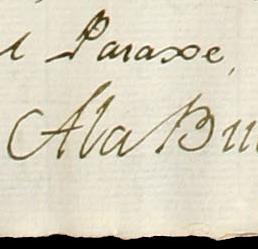 Paraxe,
Ala Bu